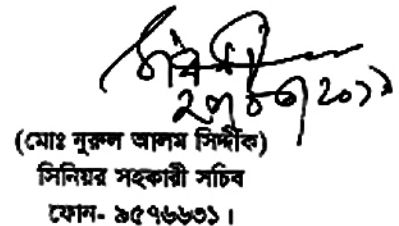 (মোঃ নূরুল আলম সিদ্দীক)
সিনিয়র সহকারী সচিব
ফোন- ৯৫৭৬৬৩১।